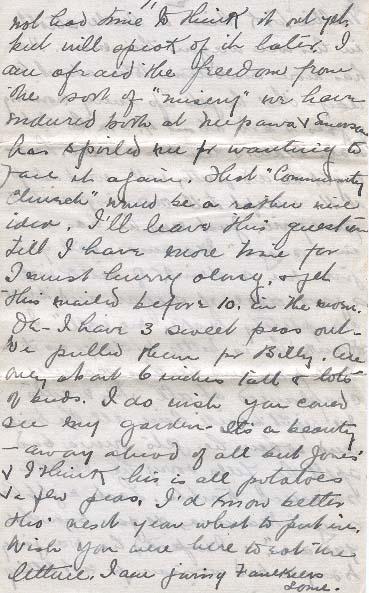 not had time to think it out yet,
but will speak of it later. I
am afraid the freedom from
the sort of "misery" we have
endured both at Neepawa & Emerson
has spoiled me for wanting to
face it again. That "Community
Church" would be a rather nice
idea. I'll leave this question
till I have more time for
I must hurry along, & get
this mailed before 10. in the morn.
Oh - I have 3 sweet peas out -
We pulled them for Billy. Are
only about 6 inches tall & lots
of buds. I do wish you could
see my garden - It's a beauty
- away ahead of all but Jones'
& I think his is all potatoes
& a few peas. I'd know better
tho' next year what to put in.
Wish you were here to eat the
lettuce. I am giving Faulkners
some.